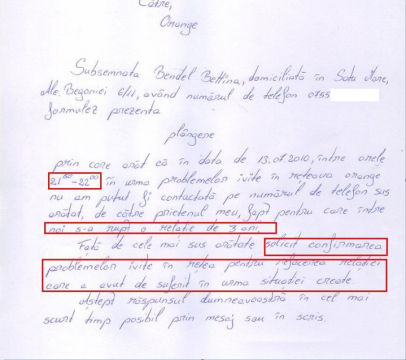 Către,
Orange
Subsemnata Bendel Bettina, domiciliată în Satu Mare,
Ale. Begoniei 6/11, având numărul de telefon 0755
formulez prezenta
plângere
prin care arăt că în data de 13.07.2010, între orele
21⁰⁰-22⁰⁰ în urma problemelor ivite în reteaua orange
nu am putut fi contactată pe numărul de telefon sus
arătat, de către prietenul meu, fapt pentru care între
noi s-a rupt o relatie de 3 ani.
Fată de cele mai sus arătate solicit confirmarea
problemelor ivite în retea pentru refacerea relatiei
care a avut de suferit în urma situatiei create.
Astept răspunsul dumneavoastră în cel mai
scurt timp posibil prin mesaj sau în scris.